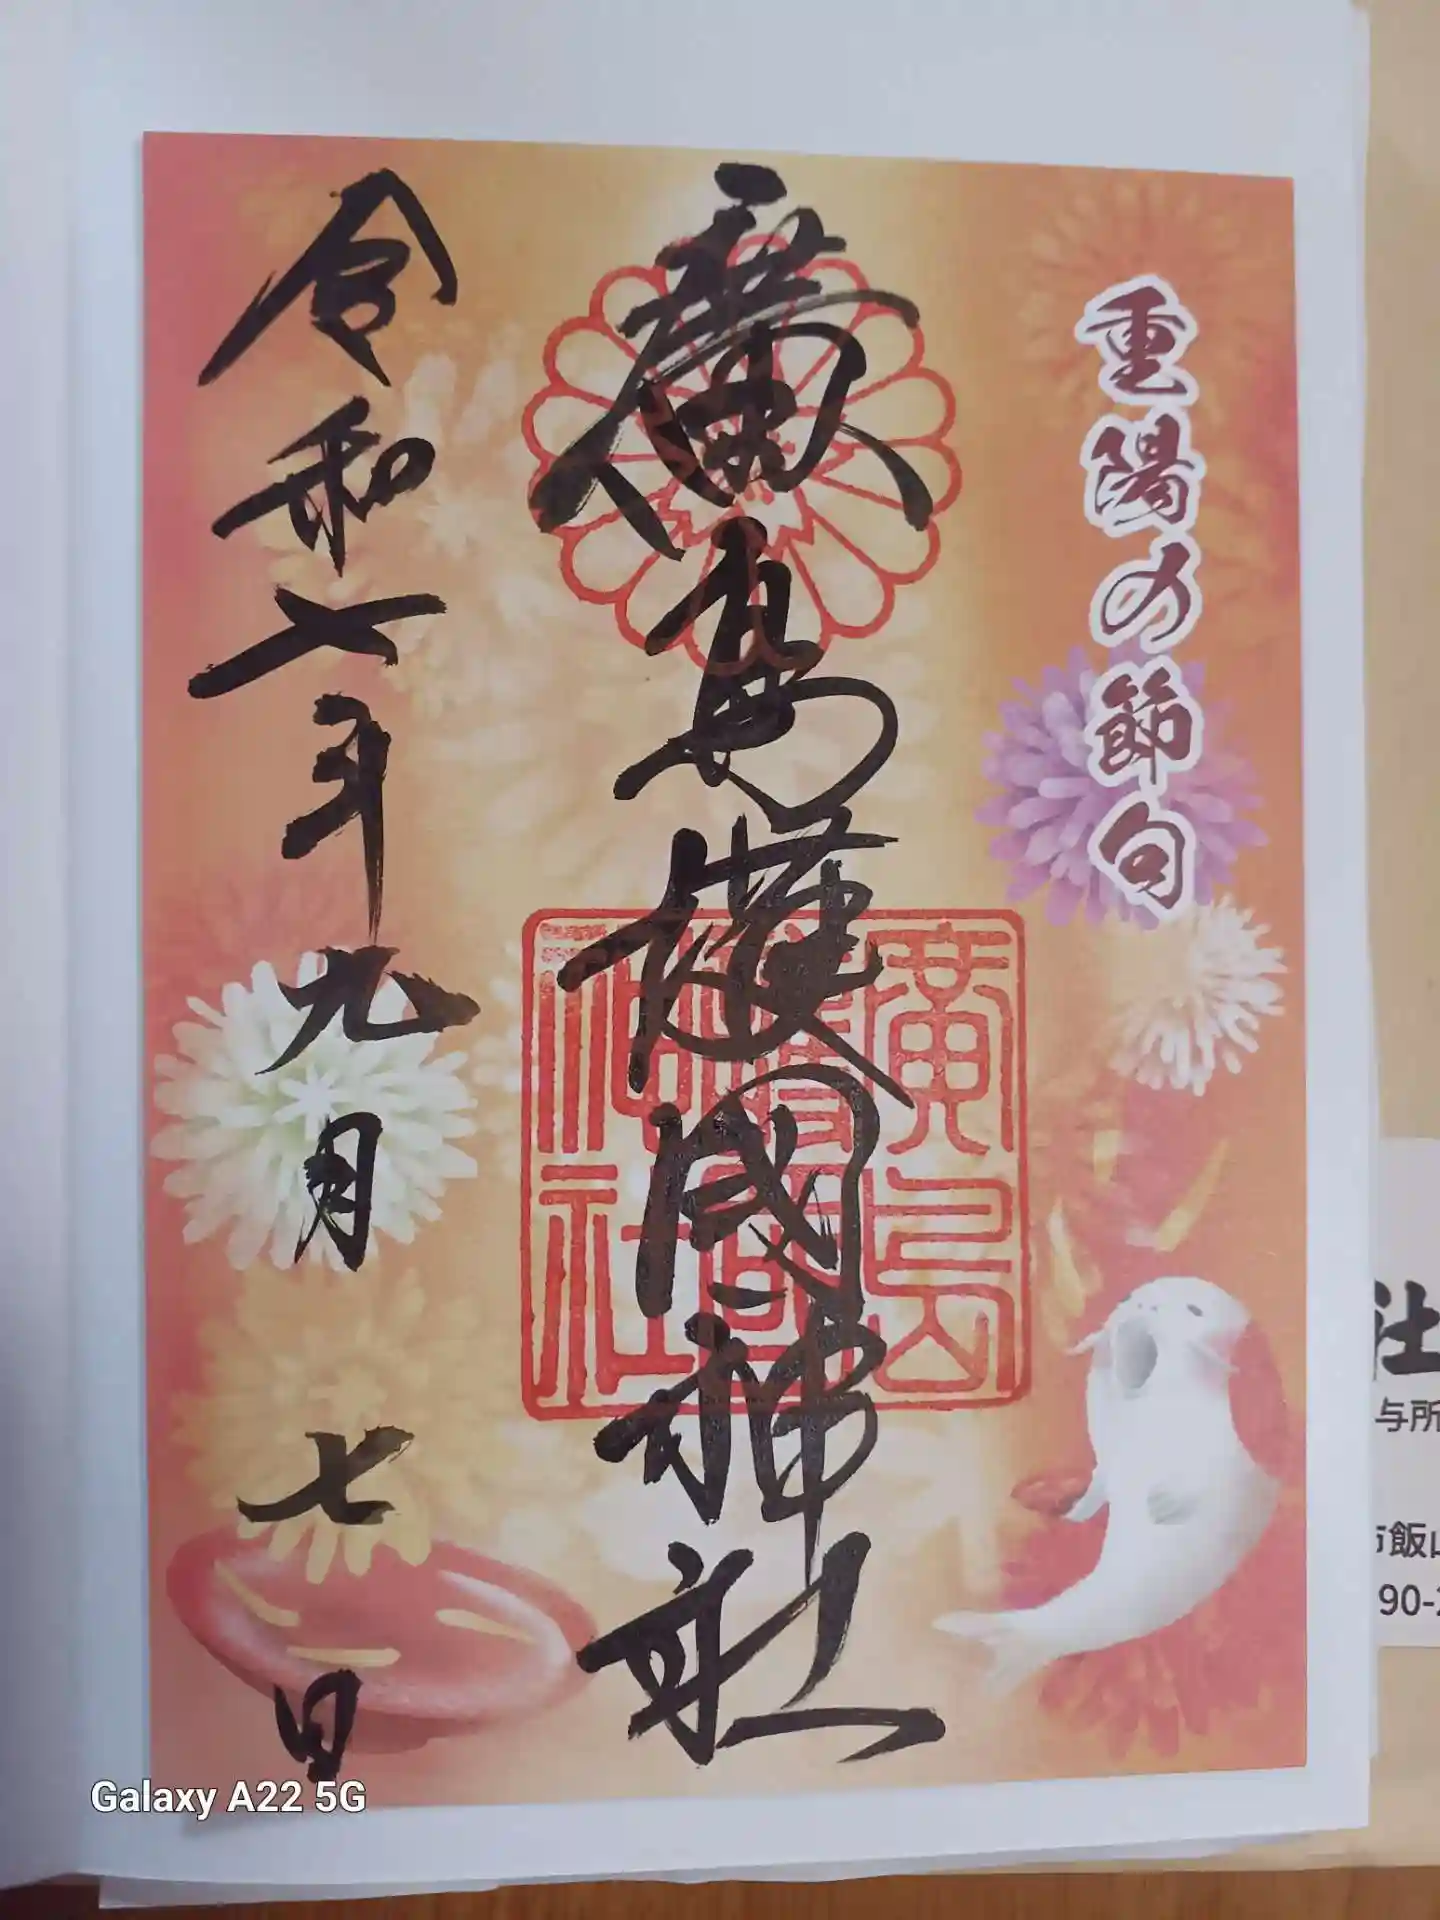 重陽の節句
廣島護國神社
廣島
護國
神社
令和七年九月七日
社
与所
市飯山
90-2
Galaxy A22 5G